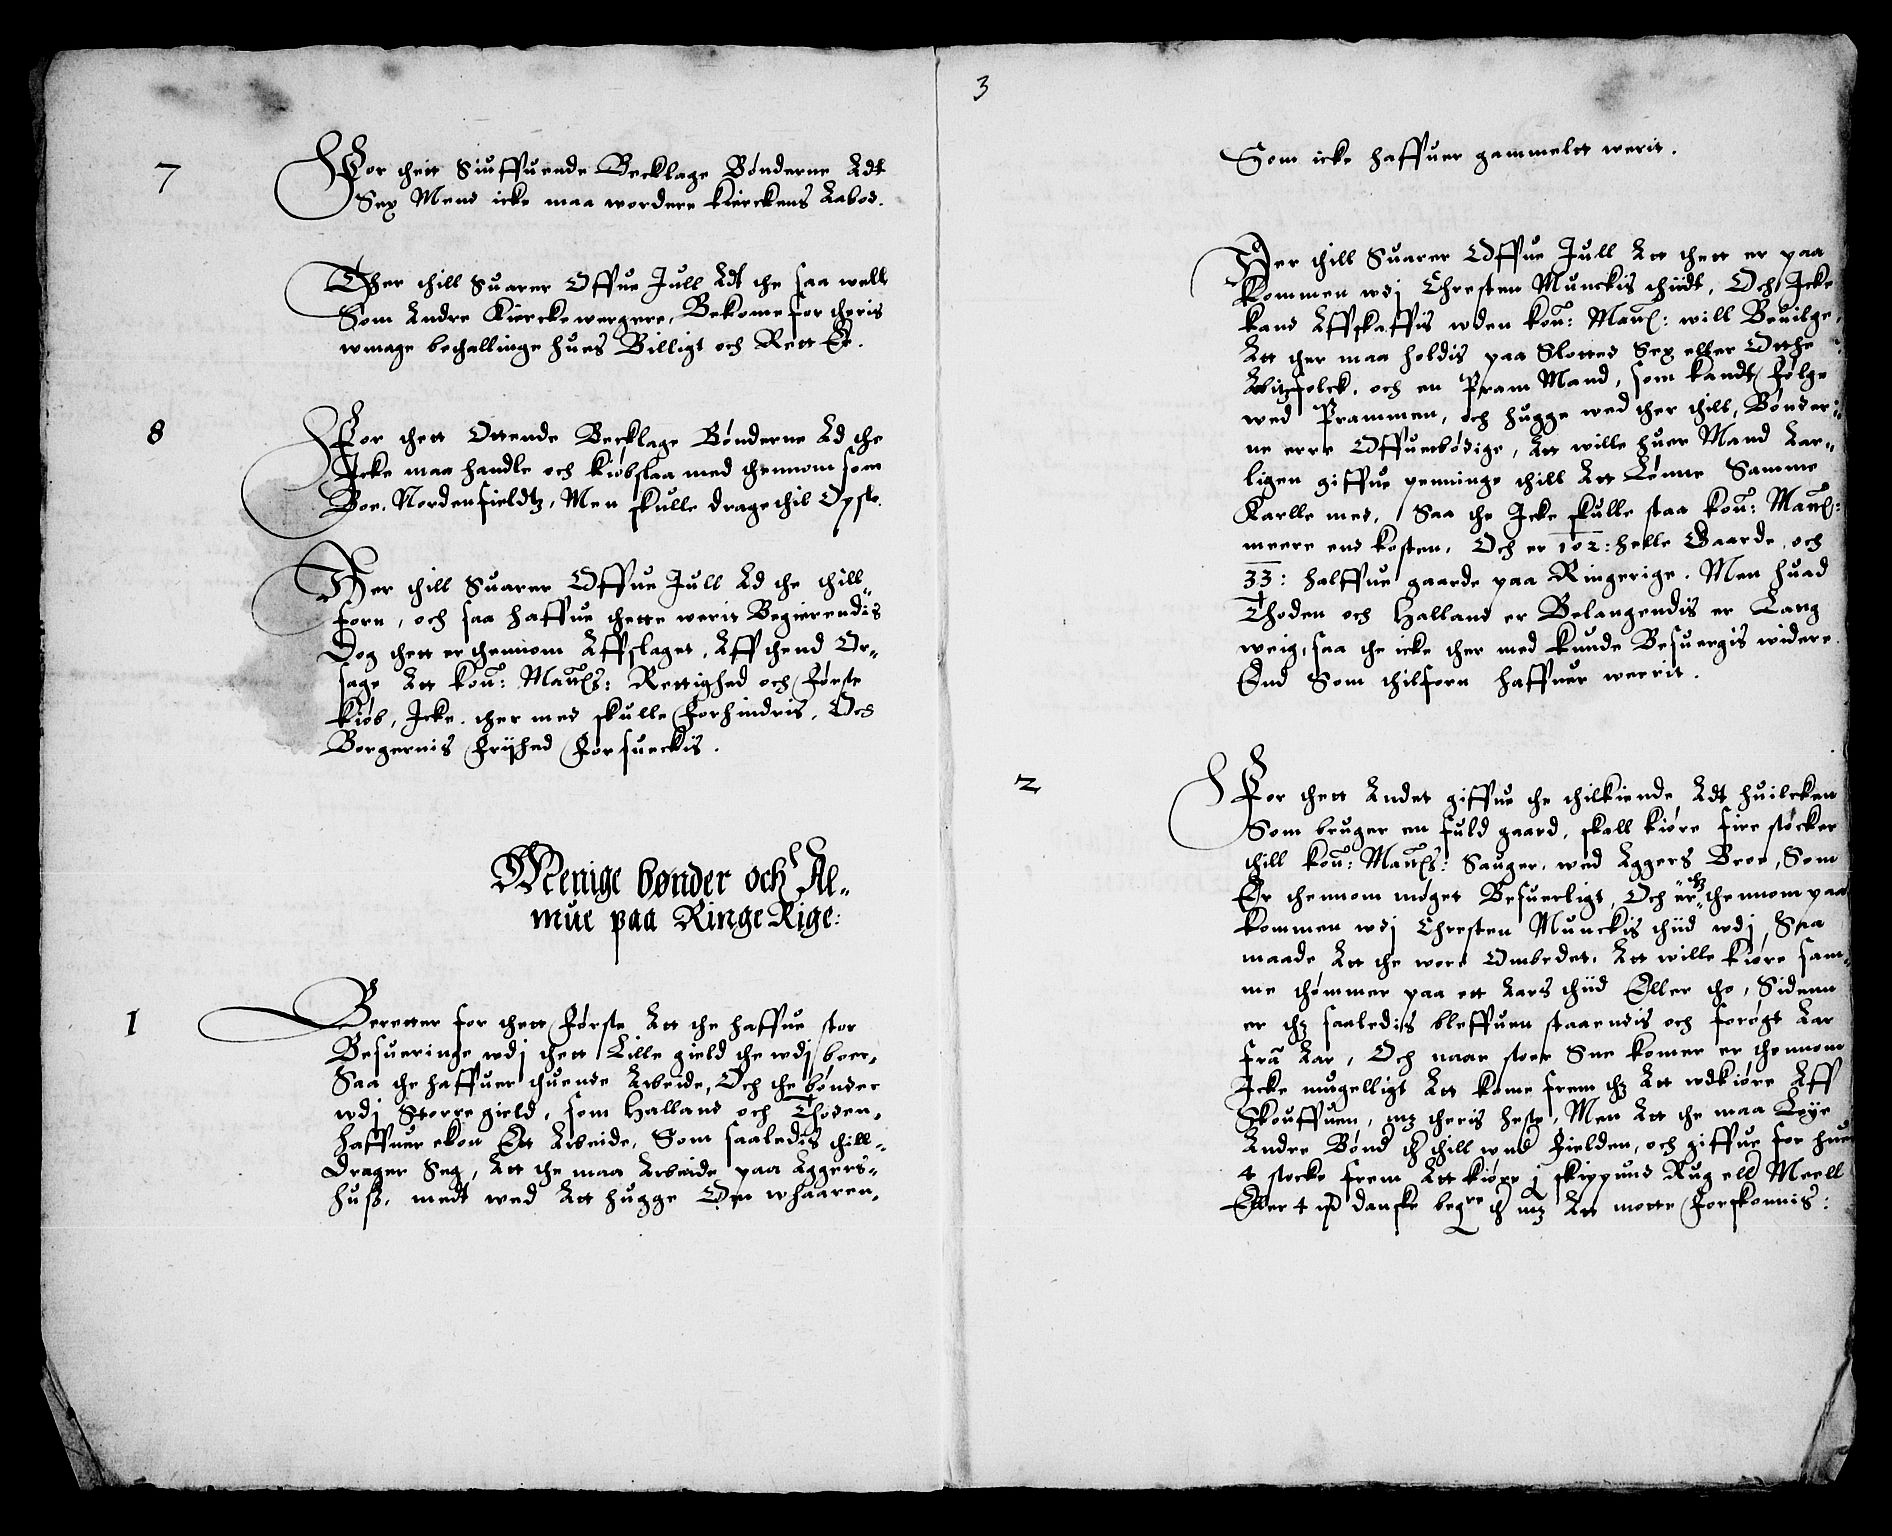 7
For thett Siuffuende Becklage Bønderne Adt
Sex Mend icke maa wordere Kierckens Aabod.
Ther thill Suarer Offue Jull Adt the saa well
Som Andre Kierckewergere, Bekome for theris
wmage bethallinge hues Billigt och Rett Er.
8
For thett Ottende Becklage Bønderne Ad the
Icke maa handle och kiøbslaa med thennom som
Boe Nordenfieldtz, Men skulle drage thil Opslo.
Ther thill Suarer Offue Jull Ad the thill
forn, och saa haffue thette werit Begierendis
Dog thett er thennom Affslaget, Aff thend Or-
sage Att kou: Mautz: Rettighed och Første
kiøb, Icke ther med skulle forhindris, Och
Borgernis fryhed Forsueckis.
Menige bønder och Al-
mue paa Ringe Rige:
1
Beretter for thett Første Att the haffue stor
Besueringe wdj thett Lille gield the wdj boer,
Saa the haffuer thuende Arbeide, Och the bønder
wdj Størregield, som Halland och Thoden,
haffuer ekon Et Arbeide, Som saaledis thill-
Drager Seg, Att the maa Arbeide paa Aggers-
huss, medt wed Att hugge Om whaaren,
3
Som icke haffuer gammelt werit.
Ther thill Suarer Offue Jull Att thett er paa
kommen wdj Chresten Munckis thiidt, Och Icke
kand Affskaffis wden kou: Maut: will Beuilge,
Att ther maa holdis paa Slotted Sex eller Otthe
Arbitzfolck, och en Pram Mand, som kandt følge
wed Prammen, och hugge wed ther thill, Bønder-
ne erre Offuerbødige, Att wille huer Mand Aar-
ligen giffue penninge thill Att Lønne Samme
Karlle med, Saa the Icke skulle staa kou: Maut:
meere end kosten, Och er 102: helle Gaarde, och
33: halffue gaarde paa Ringerige. Men huad
Thoden och Halland er Belangendis er Lang
weig, saa the icke ther med kunde Besuergis widere
End Som thilforn haffuer werrit.
2
For thett Andet giffue the thilkiende Adt huilcken
Som bruger en fuld gaard, skall kiøre fire støcker
thill kou: Mautz: Sauger, wed Aggers Broe, Som
Er thennom møget Besuerligt, Och er thz thennom paa
kommen wdj Chresten Munckis thiid wdj Saa
maade Att the wore Ombedet, Att wille kiøre sam-
me thømmer paa ett Aars thiid Eller tho, Sidenn
er thz saaledis bleffuen staaendis och forøgt Aar
fra Aar, Och naar stoer Sne komer er thennom
Icke mugelligt Att kome frem thz Att wdkiøre Aff
Skouffuen, mz theris heste, Men Att the maa Leye
Andre Bønd thill wed Fielden, och giffue for huer
4 stocke frem Att kiøre j skippund Rug eld Meell
Eller 4 danske mz Att motte Forskonnis: